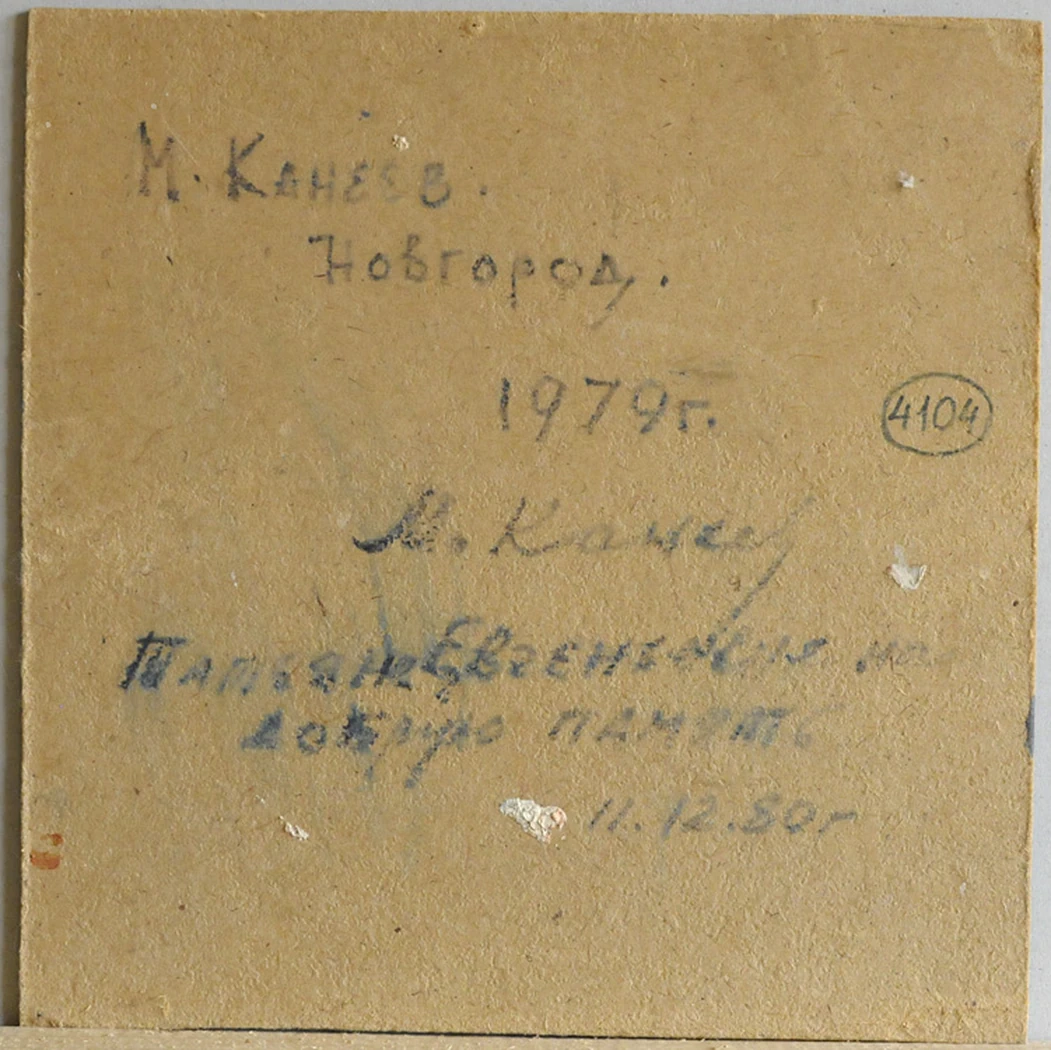 М. Канеев.
Новгород.
1979г.
4104
М. Канеев
Татьяне Евгеньевне на
добрую память
11.12.80г